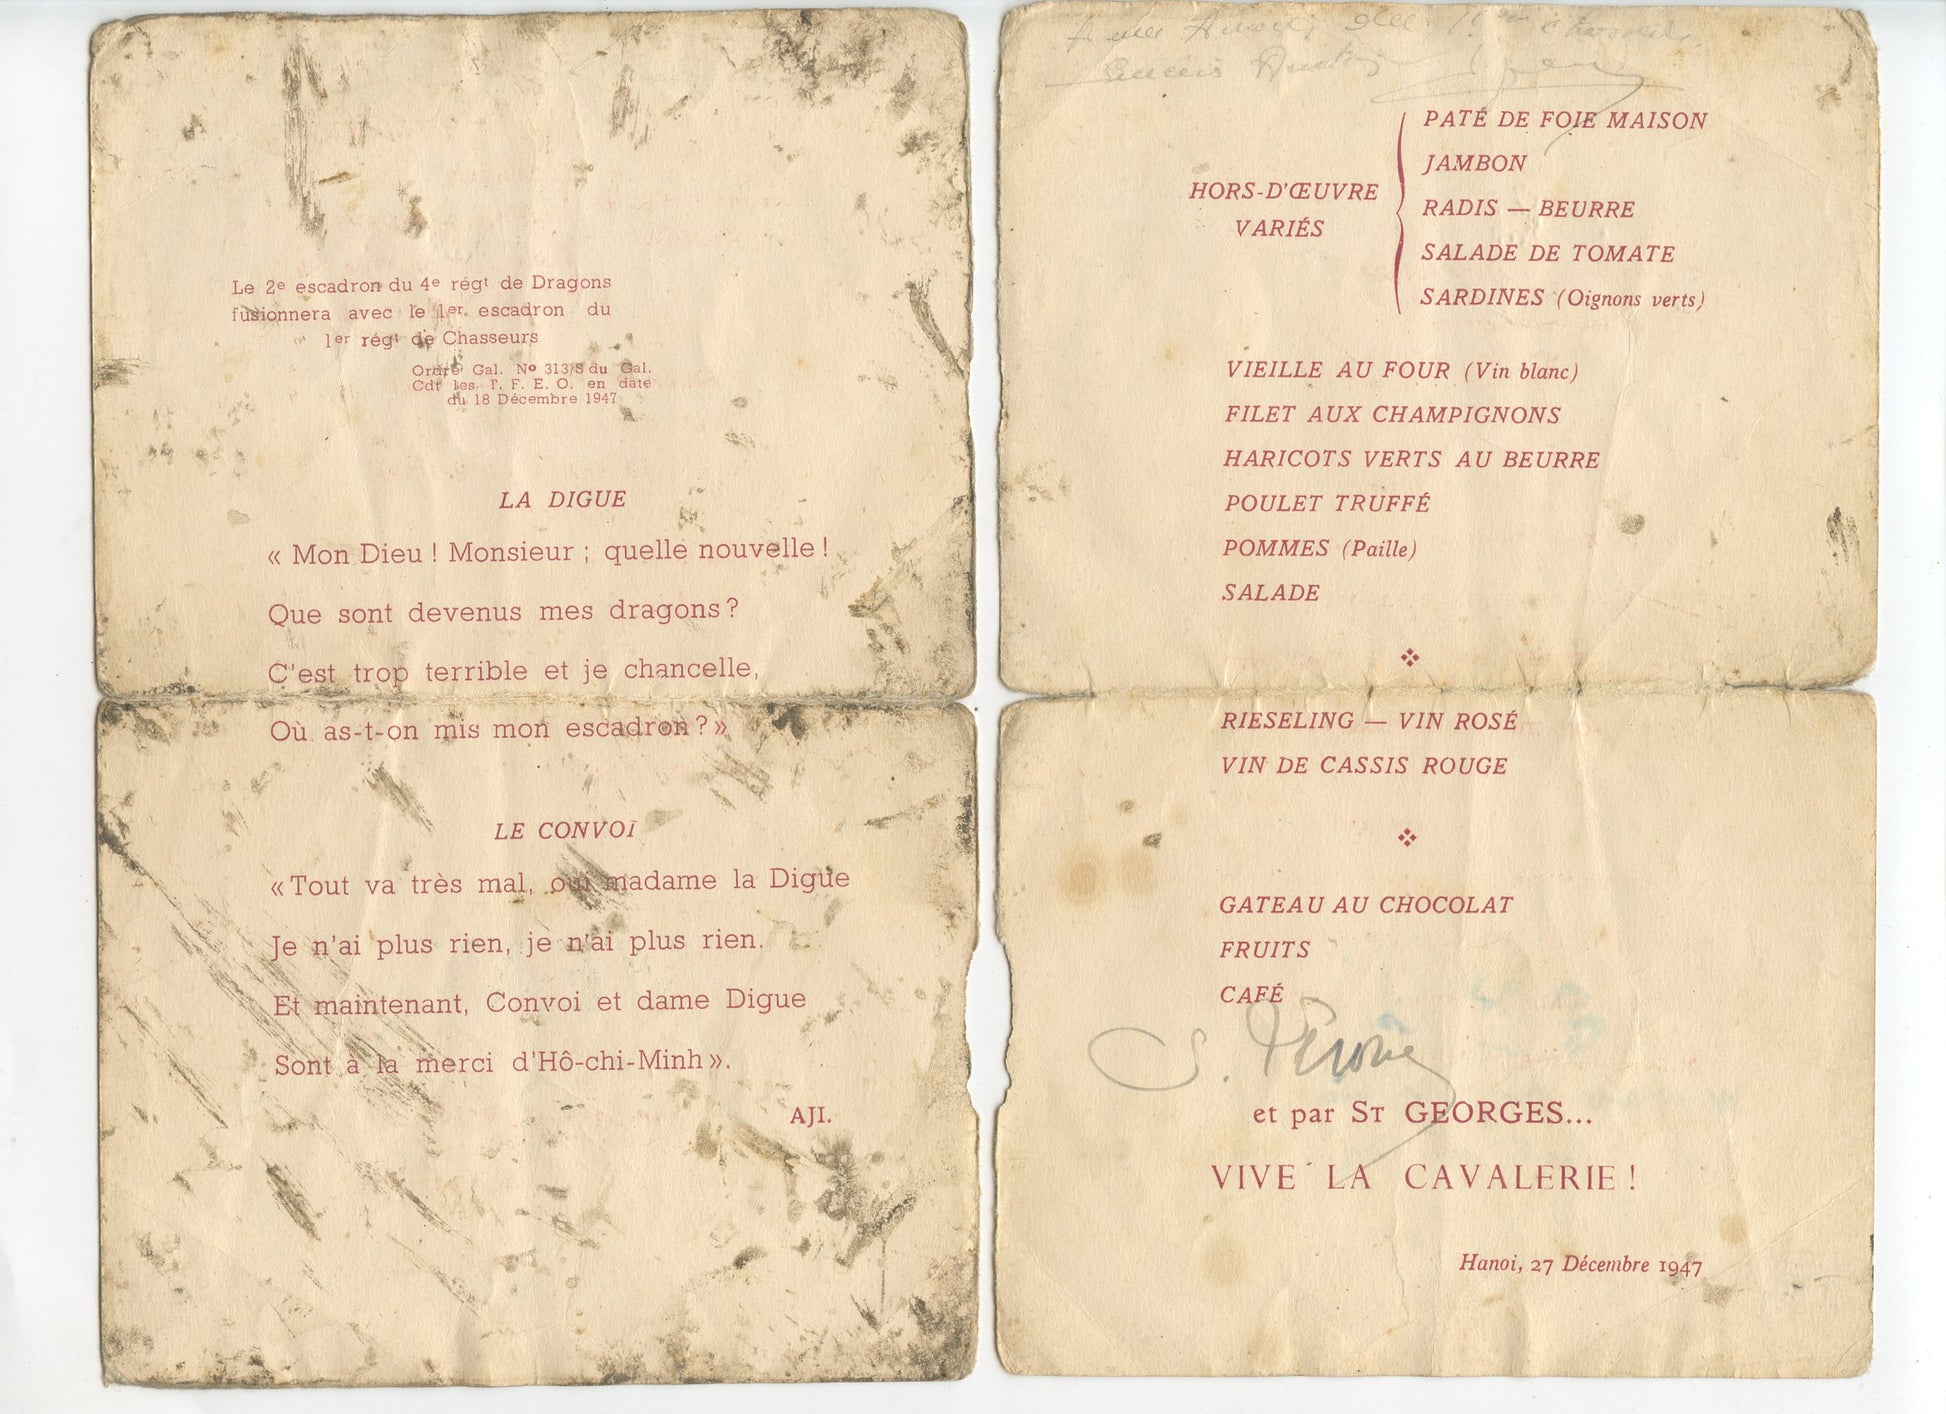 Le 2e escadron du 4e régt de Dragons
fusionnera avec le 1er escadron du
1er régt de Chasseurs
Ordre Gal. No 313/S du Gal.
Cdt les T. F. E. O. en date
du 18 Décembre 1947
LA DIGUE
« Mon Dieu ! Monsieur ; quelle nouvelle !
Que sont devenus mes dragons ?
C'est trop terrible et je chancelle,
Où as-t-on mis mon escadron ? »
LE CONVOI
« Tout va très mal, oui madame la Digue
Je n'ai plus rien, je n'ai plus rien.
Et maintenant, Convoi et dame Digue
Sont à la merci d'Hô-chi-Minh ».
AJI.
HORS-D'ŒUVRE
VARIÉS
PATÉ DE FOIE MAISON
JAMBON
RADIS — BEURRE
SALADE DE TOMATE
SARDINES (Oignons verts)
VIEILLE AU FOUR (Vin blanc)
FILET AUX CHAMPIGNONS
HARICOTS VERTS AU BEURRE
POULET TRUFFÉ
POMMES (Paille)
SALADE
RIESELING — VIN ROSÉ
VIN DE CASSIS ROUGE
GATEAU AU CHOCOLAT
FRUITS
CAFÉ
et par ST GEORGES...
VIVE LA CAVALERIE !
Hanoi, 27 Décembre 1947